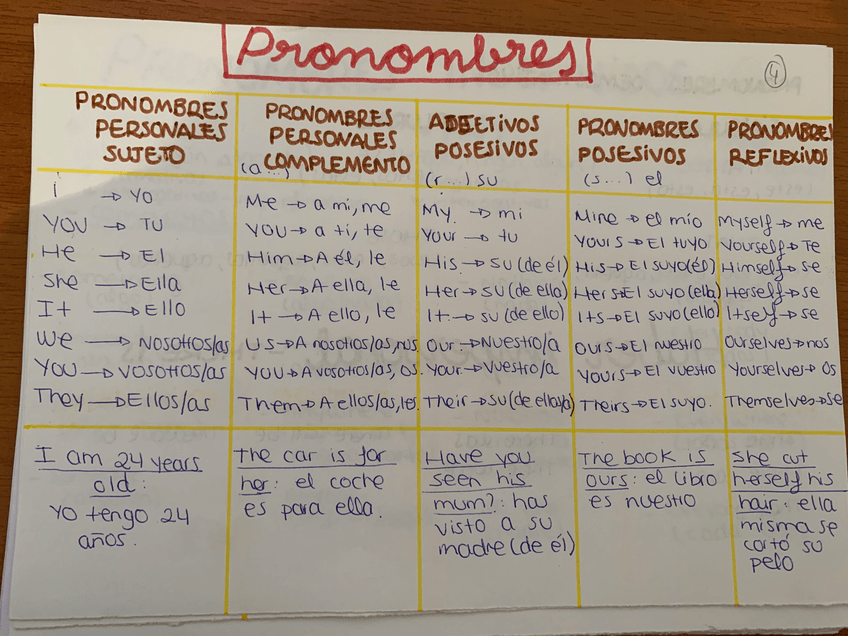 Pronombres
4
PRONOMBRES
PERSONALES
SUJETO
i → YO
YOU → TU
He → El
She → Ella
It → Ello
We → Nosotros/as
You → Vosotros/as
They → Ellos/as
I am 24 years
old:
Yo tengo 24
años.
PRONOMBRES
PERSONALES
COMPLEMENTO
(a...)
Me → a mi, me
YOU → a ti, te
Him → A él, le
Her → A ella, le
It → A ello, le
US → A nosotros/as, nos
YOU → A vosotros/as, os
Them → A ellos/as, les
The car is for
her: el coche
es para ella.
ADJETIVOS
POSESIVOS
(r...) su
My → mi
Your → tu
His → su (de él)
Her → su (de ella)
It → su (de ello)
Our → Nuestro/a
Your → Vuestro/a
Their → su (de
Have you
seen his
mum?: has
visto a su
madre (de él)
PRONOMBRES
POSESIVOS
(s...) el
Mine → el mío
Yours → El tuyo
His → El suyo (él)
Hers → El suyo (ella)
Its → El suyo (ello)
Ours → El nuestro
Yours → El vuestro
Theirs → El suyo.
The book is
ours: el libro
es nuestro
PRONOMBRES
REFLEXIVOS
Myself → me
Yourself → Te
Himself → se
Herself → se
Itself → se
Ourselves → nos
Yourselves → Os
Themselves → se
She cut
herself his
hair: ella
misma se
cortó su
pelo